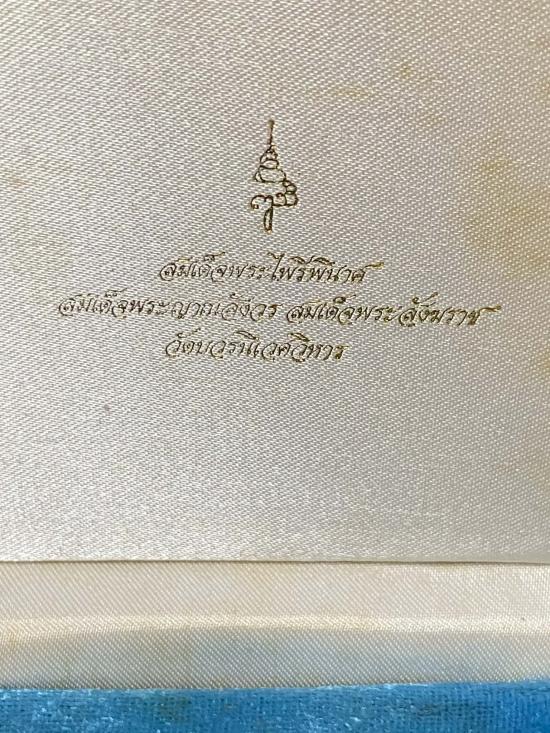 สมเด็จพระไพรีพินาศ
สมเด็จพระญาณสังวร สมเด็จพระสังฆราช
วัดบวรนิเวศวิหาร